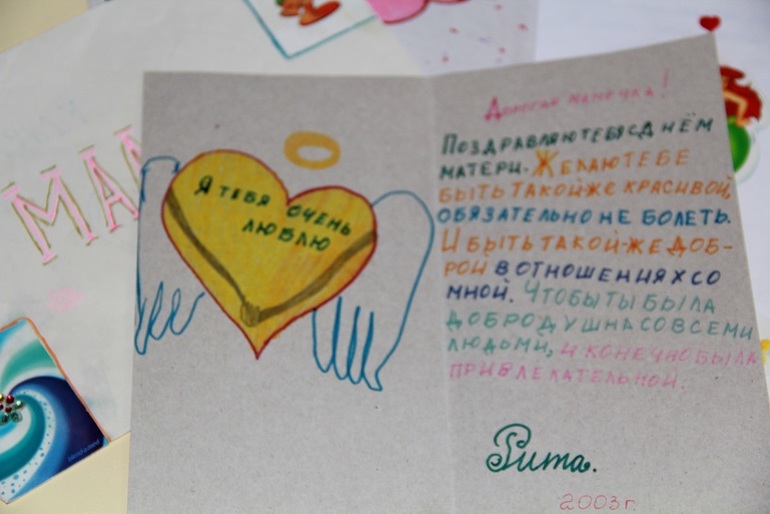 МАМ
Я ТЕБЯ ОЧЕНЬ
ЛЮБЛЮ
Дорогая мамочка!
ПОЗДРАВЛЯЮ ТЕБЯ С ДНЁМ
МАТЕРИ. ЖЕЛАЮ ТЕБЕ
БЫТЬ ТАКОЙ-ЖЕ КРАСИВОЙ,
ОБЯЗАТЕЛЬНО НЕ БОЛЕТЬ.
И БЫТЬ ТАКОЙ-ЖЕ ДОБ-
РОЙ В ОТНОШЕНИЯХ СО
МНОЙ. ЧТОБЫ ТЫ БЫЛА
ДОБРОДУШНА СО ВСЕМИ
ЛЮДЬМИ, И КОНЕЧНО БЫЛА
ПРИВЛЕКАТЕЛЬНОЙ.
Рита.
2003 г.